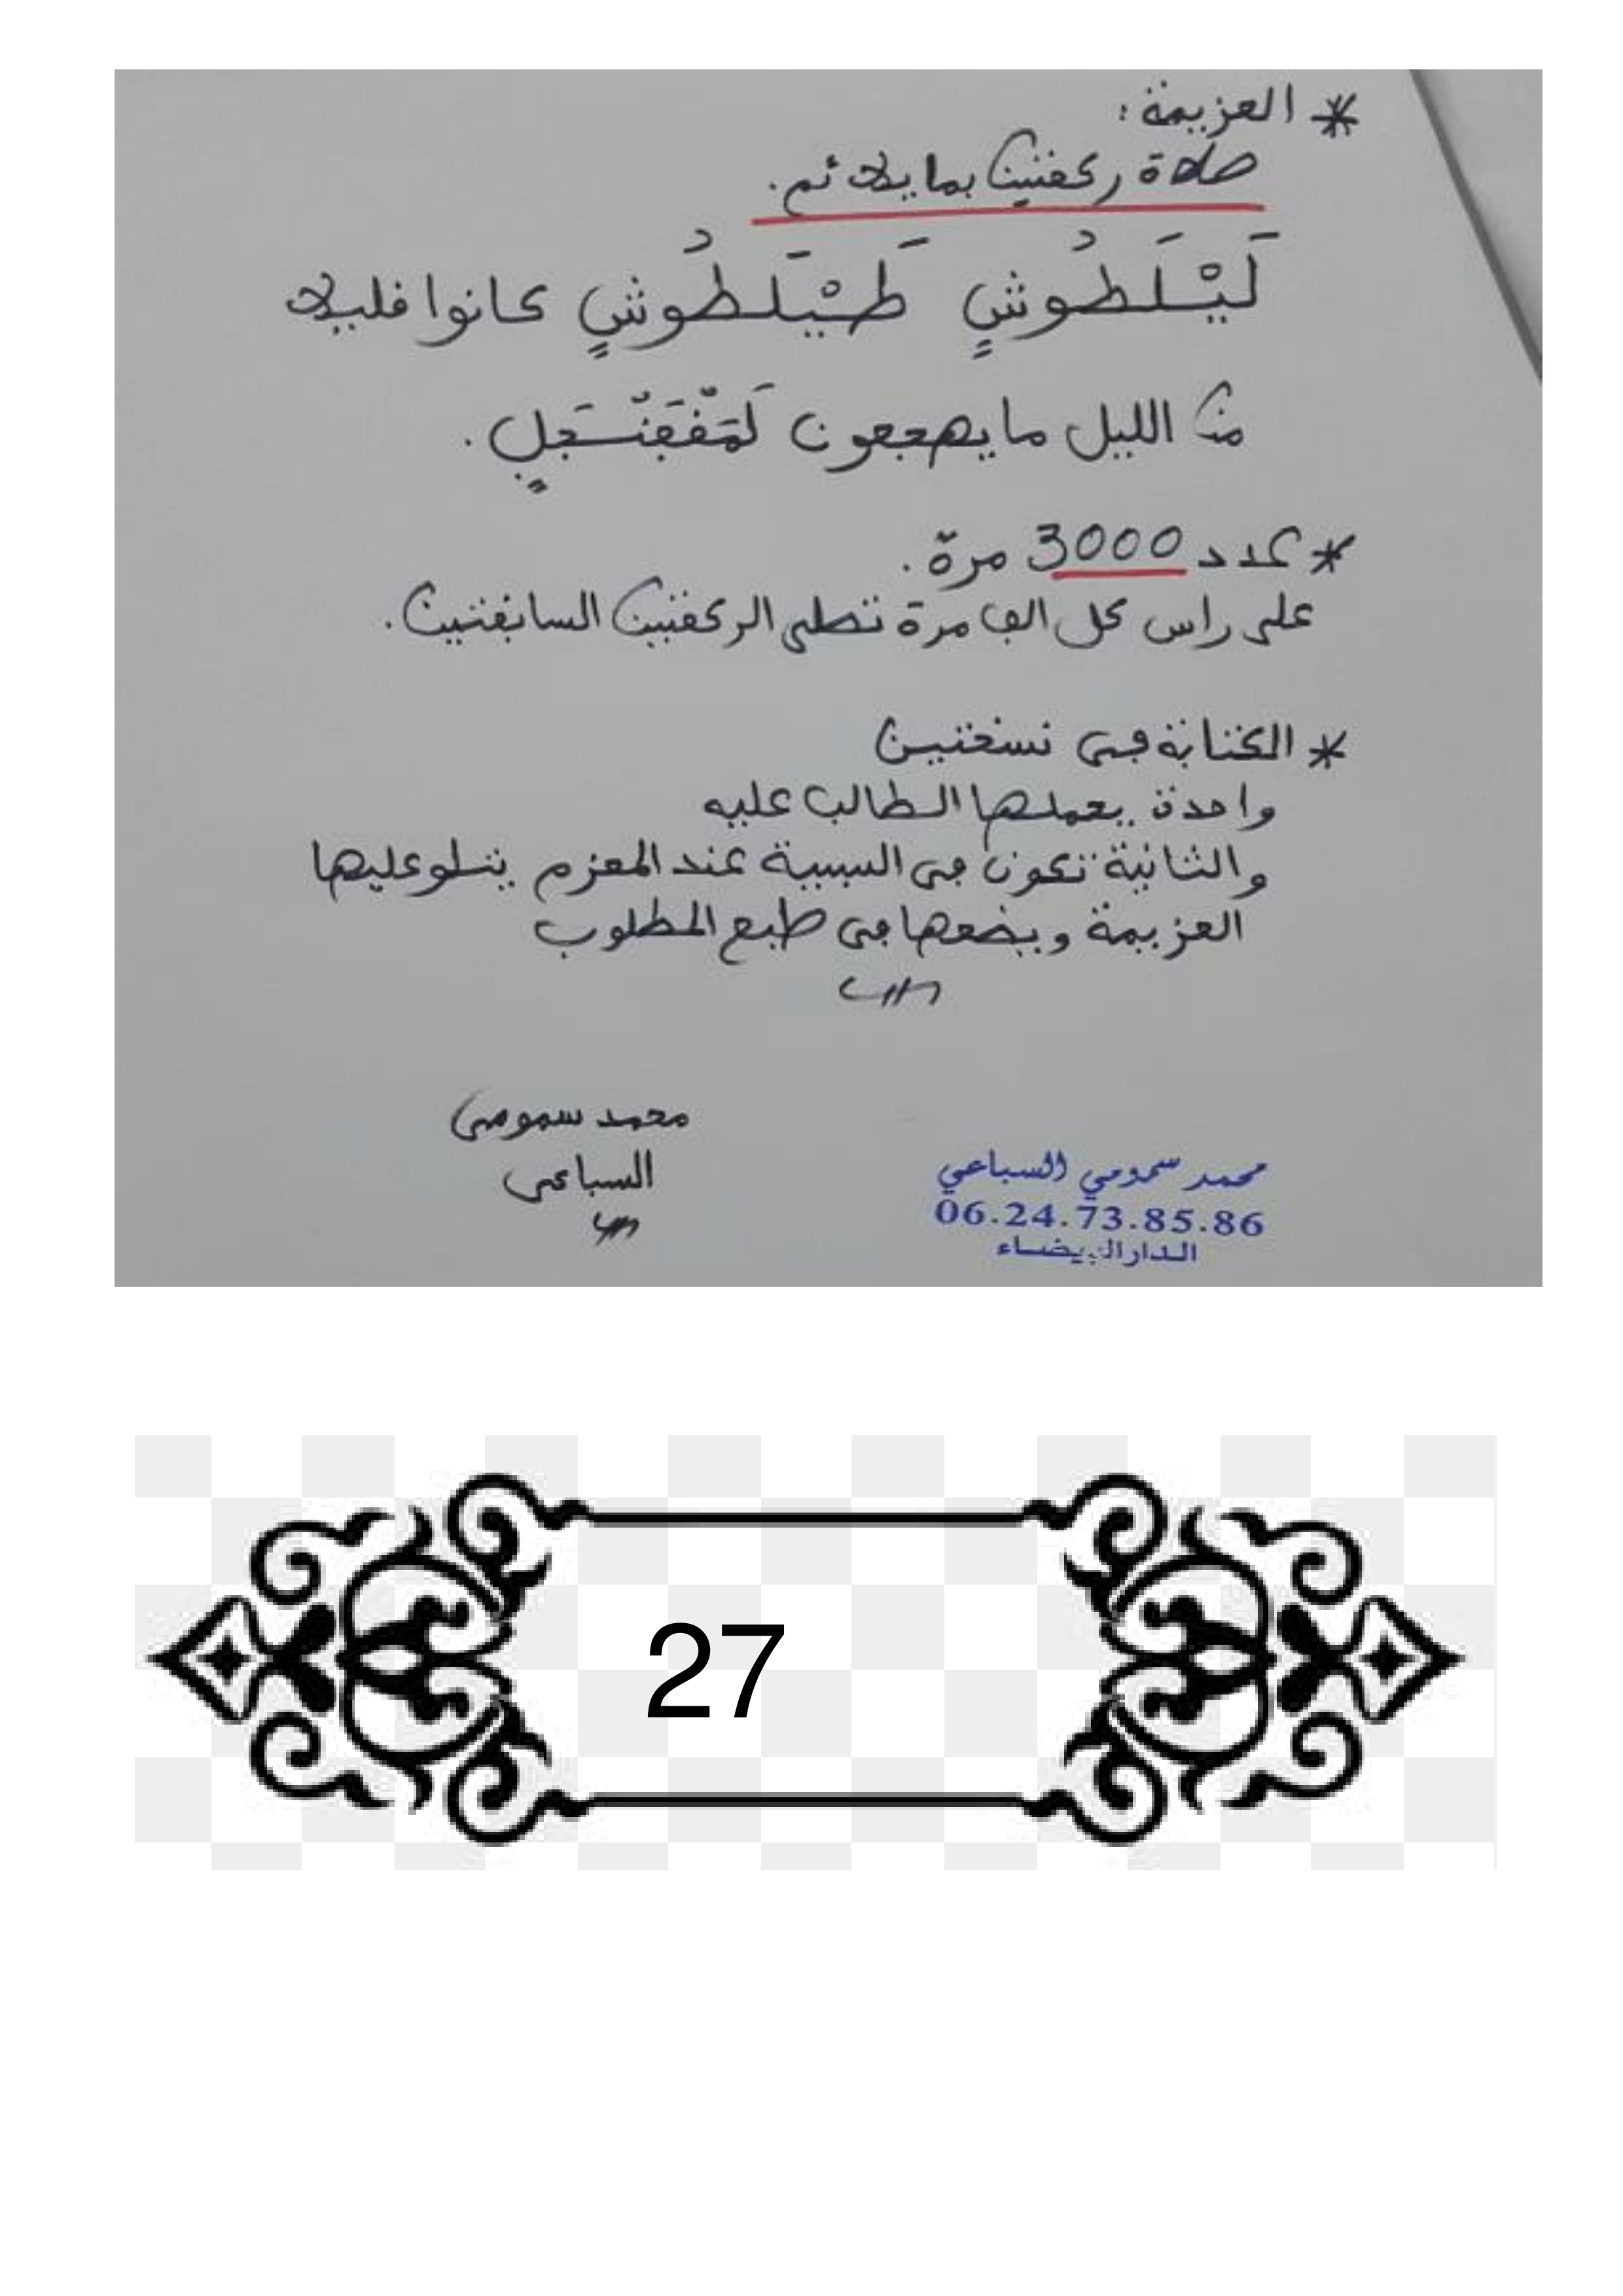 * العزيمة :
صلاة ركعتين بما يلائم.
لَيْلَطُوشٍ طَيْلَطُوشٍ كانوا قليلا
من الليل ما يهجعون
* عدد 3000 مرة .
على راس كل الف مرة تصلى الركعتين السابقتين .
* الكتابة في نسختين
واحدة يحملها الطالب عليه
والثانية تكون في السيبة عند المعزم يتلو عليها
العزيمة ويضعها في طبع المطلوب
محمد سمومي
السباعي
محمد سمومي السباعي
06.24.73.85.86
الدار البيضاء
27